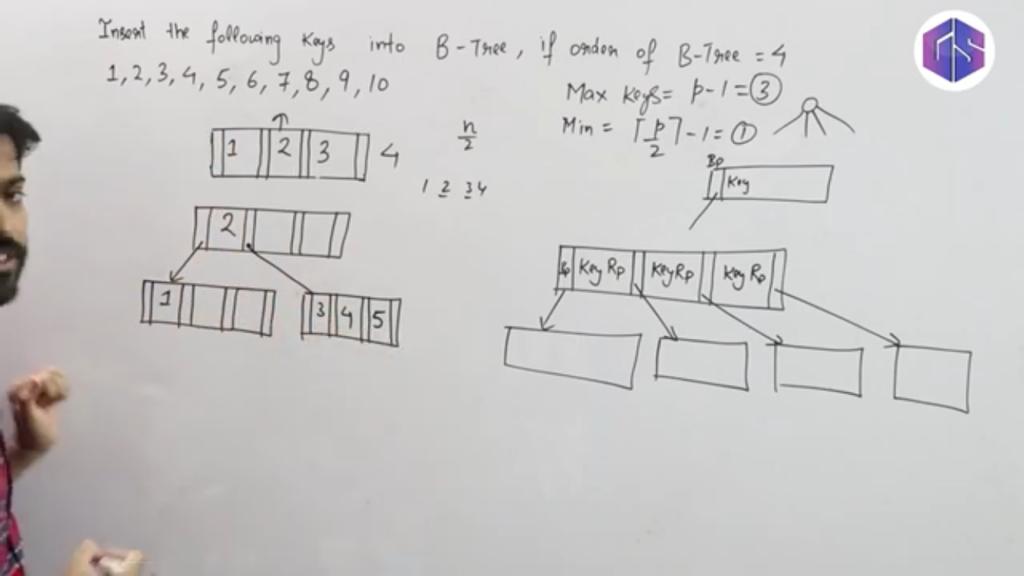 Insert the following Keys into B-Tree, if order of B-Tree = 4
1, 2, 3, 4, 5, 6, 7, 8, 9, 10
Max Keys = p - 1 = 3
Min = ⌈p/2⌉ - 1 = 1
1 2 3 4
n/2
1 2 3 4
Bp Key
2
1
3 4 5
Bp Key Rp Key Rp Key Rp